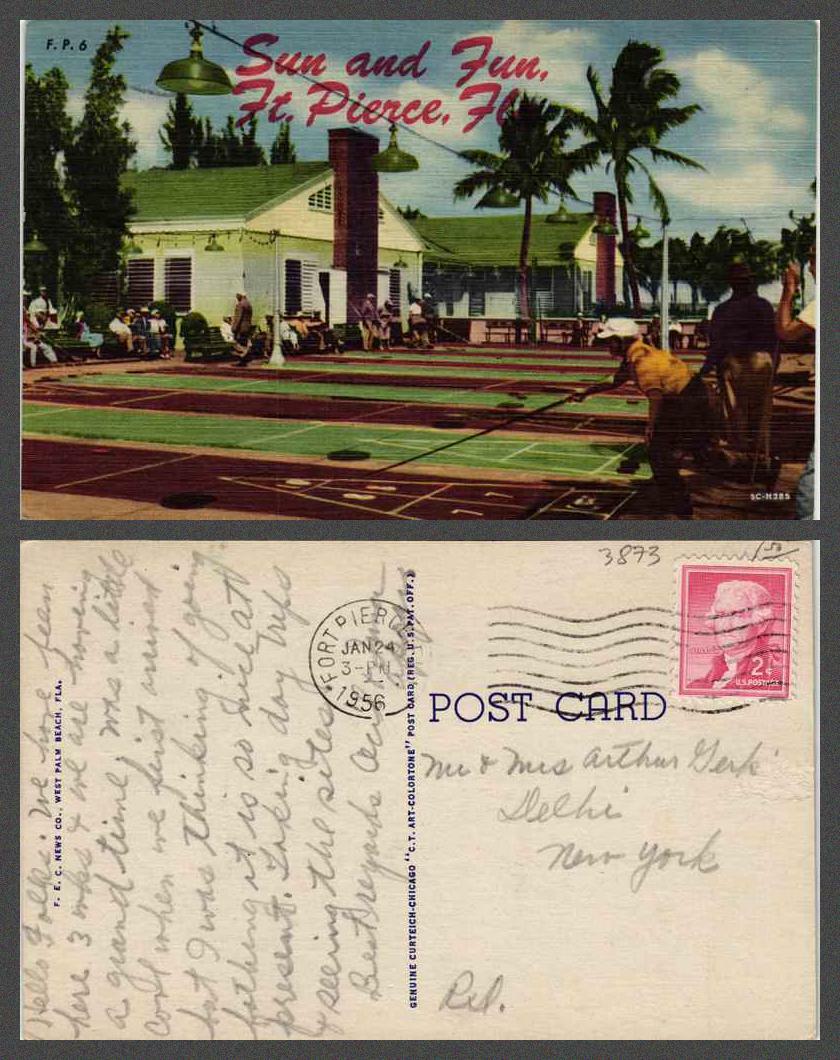 F. P. 6
Sun and Fun,
Ft. Pierce, Fla
5C-H285
3873
FORT PIERCE
JAN 24
3-PM
1956
2¢
U.S. POSTAGE
POST CARD
Mr & Mrs Arthur Gerk
Delhi
New York
Rd.
GENUINE CURTEICH-CHICAGO "C.T. ART-COLORTONE" POST CARD (REG. U.S. PAT. OFF.)
F. E. C. NEWS CO., WEST PALM BEACH, FLA.
Hello Folks: We have been
here 3 wks & we are having
a grand time, was a little
cool when we first arrived
but I was thinking of going
bathing it is so nice at
present. Taking day trips
& seeing the sites
Best regards